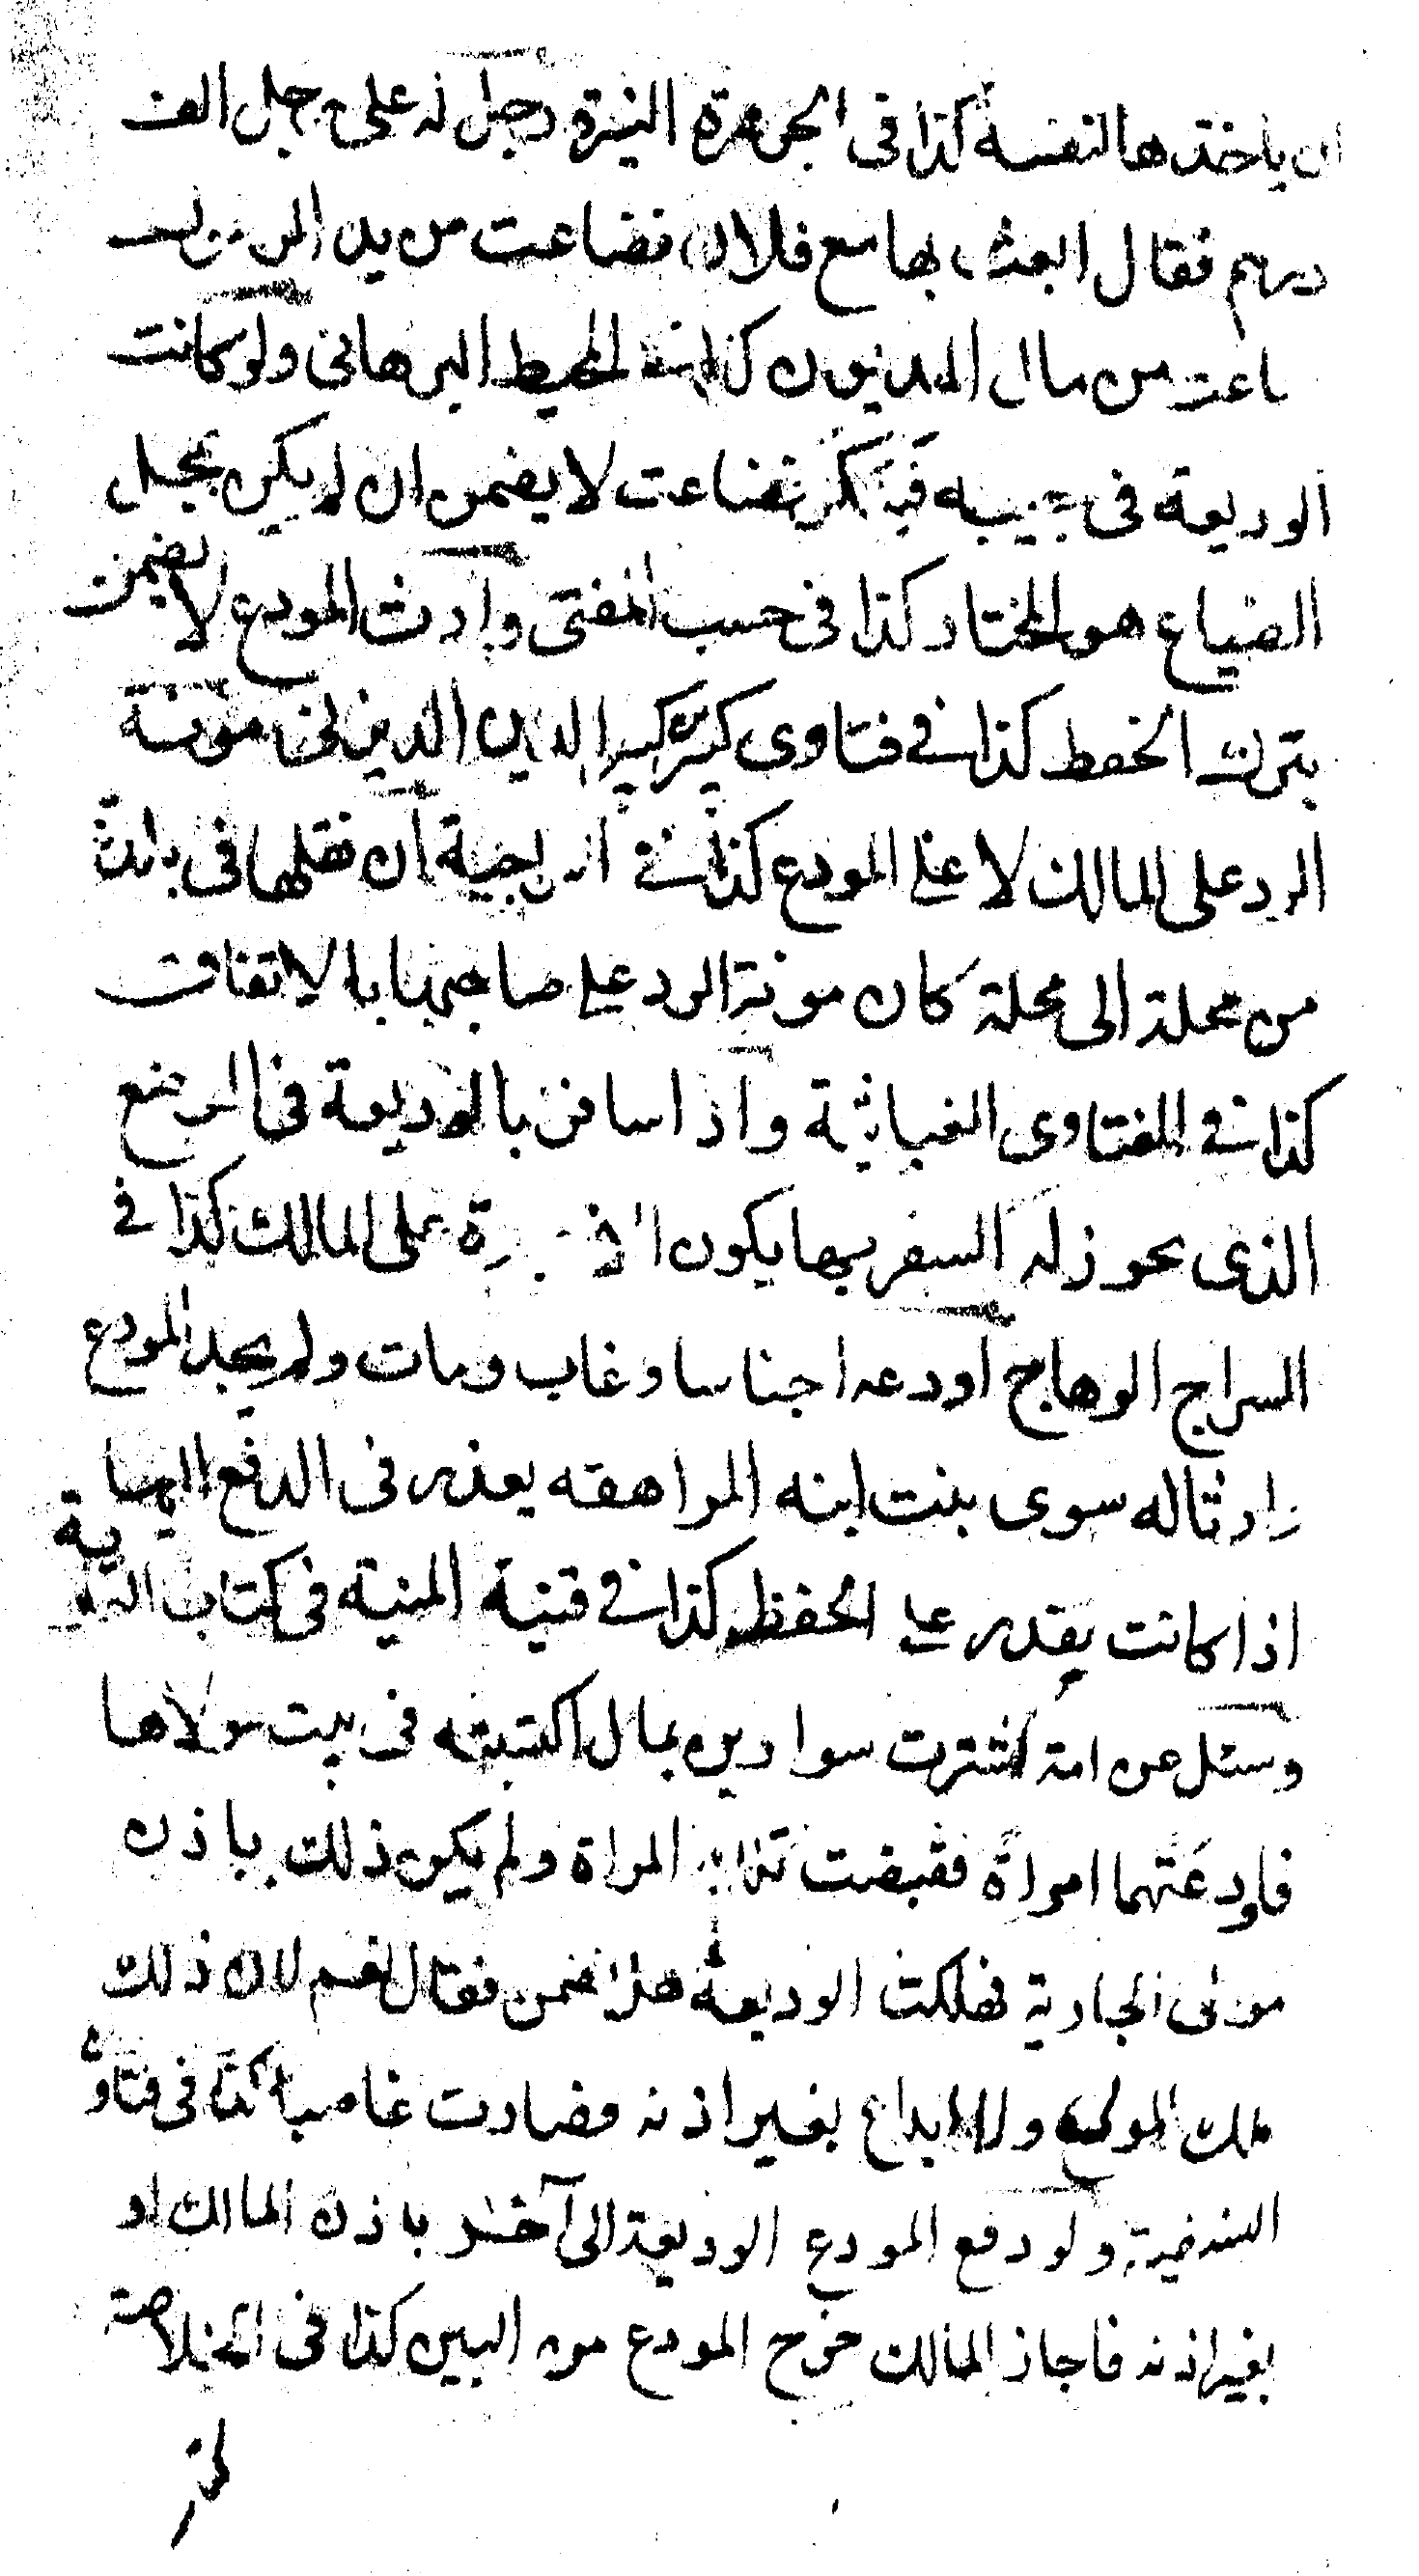 ان ياخذها لنفسه كذا فى الجوهرة النيرة رجل له على رجل الف
درهم فقال ابعث بها مع فلان فضاعت من يد الرسول
ضاعت من مال المديون كذا فى المحيط البرهانى ولو كانت
الوديعة فى جيبه فضاعت لا يضمن ان لم يكن بمجلس
الضياع هو المختار كذا فى حسب المفتى وارث المودع لا يضمن
بترك الحفظ كذا فى فتاوى كبير الدين مؤنة
الرد على المالك لا على المودع كذا فى السراجية ان نقلها فى بلدة
من محلة الى محلة كان مونة الرد على صاحبها بالاتفاق
كذا فى الفتاوى الغياثية واذا سافر بالوديعة فى الموضع
الذى يجوز له السفر بها يكون الاجرة على المالك كذا فى
السراج الوهاج اودعه اجناسا وغاب ومات ولم يجد المودع
وارثا له سوى بنت ابنه المراهقه يعذر فى الدفع اليها
اذا كانت يقدر على الحفظ كذا فى قنية المنية فى كتاب
وسئل عن امة اشترت سوارين بمال اكتسبته فى بيت مولاها
فاودعتهما امراة فقبضت تلك المراة ولم يكن ذلك باذن
مولى الجارية فهلكت الوديعة هل تضمن فقال نعم لان ذلك
ملك المولى والايداع بغير اذنه فصارت غاصبا كذا فى فتاوى
النسفية ولو دفع المودع الوديعة الى آخر باذن المالك او
بغير اذنه فاجاز المالك خرج المودع من البين كذا فى الخلاصة